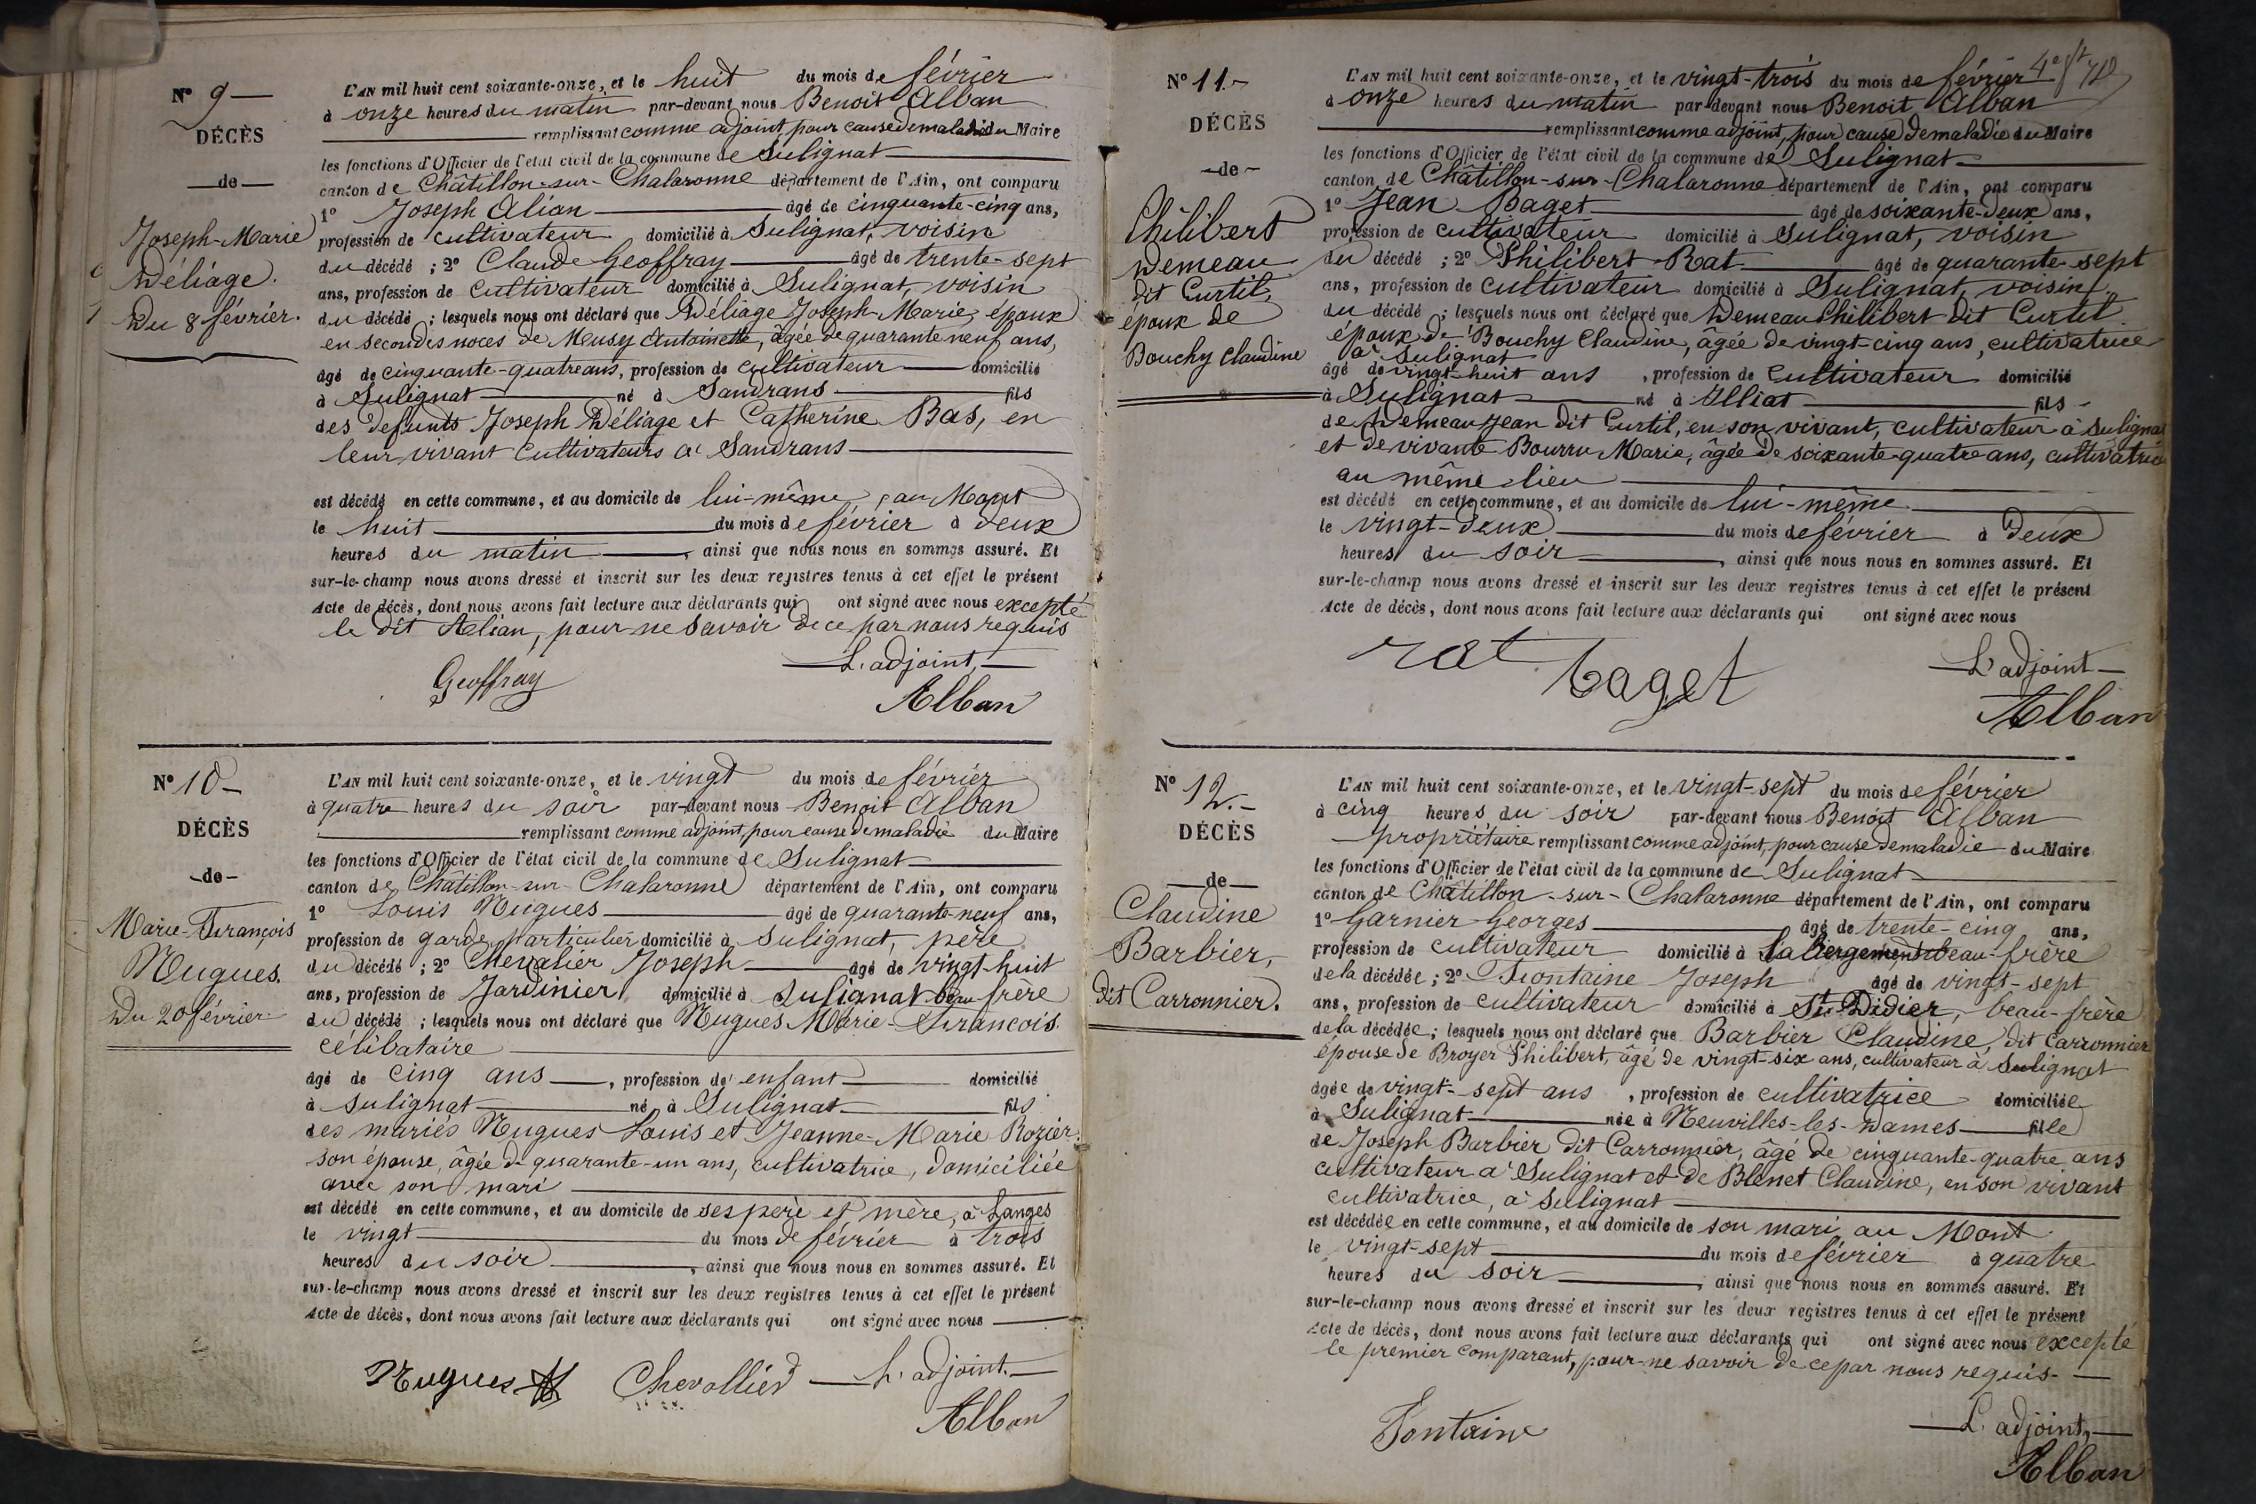 N° 9
DÉCÈS
de
Joseph-Marie
Déliage.
Du 8 février.
L'AN mil huit cent soixante-onze, et le huit du mois de février
à onze heures du matin par-devant nous Benoit Alban
remplissant comme adjoint, pour cause de maladie du Maire
les fonctions d'Officier de l'état civil de la commune de Sulignat
canton de Châtillon-sur-Chalaronne département de l'Ain, ont comparu
1° Joseph Alian âgé de cinquante-cinq ans,
profession de cultivateur domicilié à Sulignat, voisin
du décédé ; 2° Claude Geoffray âgé de trente-sept
ans, profession de cultivateur domicilié à Sulignat, voisin
du décédé ; lesquels nous ont déclaré que Déliage Joseph-Marie, époux
en secondes noces de Meusy Antoinette, âgée de quarante neuf ans,
âgé de cinquante-quatre ans, profession de cultivateur domicilié
à Sulignat né à Sandrans fils
des defunts Joseph Déliage et Catherine Bas, en
leur vivant cultivateurs à Sandrans
est décédé en cette commune, et au domicile de lui-même, au Mont
le huit du mois de février à deux
heures du matin, ainsi que nous nous en sommes assuré. Et
sur-le-champ nous avons dressé et inscrit sur les deux registres tenus à cet effet le présent
Acte de décès, dont nous avons fait lecture aux déclarants qui ont signé avec nous excepté
le dit Alian, pour ne savoir de ce par nous requis
L'adjoint,
Geoffray
Alban
N° 10
DÉCÈS
de
Marie-François
Nugues.
Du 20 février
L'AN mil huit cent soixante-onze, et le vingt du mois de février
à quatre heures du soir par-devant nous Benoit Alban
remplissant comme adjoint, pour cause de maladie du Maire
les fonctions d'Officier de l'état civil de la commune de Sulignat
canton de Châtillon-sur-Chalaronne département de l'Ain, ont comparu
1° Louis Nugues âgé de quarante-neuf ans,
profession de garde particulier domicilié à Sulignat, père
du décédé ; 2° Chevalier Joseph âgé de vingt-huit
ans, profession de Jardinier, domicilié à Sulignat beau frère
du décédé ; lesquels nous ont déclaré que Nugues Marie-François.
célibataire
âgé de cinq ans, profession de enfant domicilié
à Sulignat né à Sulignat fils
des mariés Nugues Louis et Jeanne-Marie Rozier.
son épouse, âgée de quarante-un ans, cultivatrice, domiciliée
avec son mari
est décédé en cette commune, et au domicile de ses père et mère, à Langes
le vingt du mois de février à trois
heures du soir, ainsi que nous nous en sommes assuré. Et
sur-le-champ nous avons dressé et inscrit sur les deux registres tenus à cet effet le présent
Acte de décès, dont nous avons fait lecture aux déclarants qui ont signé avec nous
Nugues Chevallier L'adjoint.
Alban
N° 11
DÉCÈS
de
Philibert
Demeau
dit Curtil,
époux de
Bouchy Claudine
L'AN mil huit cent soixante-onze, et le vingt-trois du mois de février
à onze heures du matin par-devant nous Benoit Alban
remplissant comme adjoint, pour cause de maladie du Maire
les fonctions d'Officier de l'état civil de la commune de Sulignat
canton de Châtillon-sur-Chalaronne département de l'Ain, ont comparu
1° Jean Baget âgé de soixante-deux ans,
profession de cultivateur domicilié à Sulignat, voisin
du décédé ; 2° Philibert Rat âgé de quarante-sept
ans, profession de cultivateur domicilié à Sulignat, voisin
du décédé ; lesquels nous ont déclaré que Demeau Philibert dit Curtil
époux de Bouchy Claudine, âgée de vingt-cinq ans, cultivatrice
à Sulignat
âgé de vingt-huit ans, profession de cultivateur domicilié
à Sulignat né à Illiat fils
de Demeau Jean dit Curtil, en son vivant, cultivateur à Sulignat
et de vivante Bourru Marie, âgée de soixante-quatre ans, cultivatrice
au même lieu
est décédé en cette commune, et au domicile de lui-même
le vingt-deux du mois de février à deux
heures du soir, ainsi que nous nous en sommes assuré. Et
sur-le-champ nous avons dressé et inscrit sur les deux registres tenus à cet effet le présent
Acte de décès, dont nous avons fait lecture aux déclarants qui ont signé avec nous
rat baget L'adjoint
Alban
N° 12.
DÉCÈS
de
Claudine
Barbier,
dit Carronnier.
L'AN mil huit cent soixante-onze, et le vingt-sept du mois de février
à cinq heures du soir par-devant nous Benoit Alban
propriétaire remplissant comme adjoint, pour cause de maladie du Maire
les fonctions d'Officier de l'état civil de la commune de Sulignat
canton de Châtillon-sur-Chalaronne département de l'Ain, ont comparu
1° Garnier Georges âgé de trente-cinq ans,
profession de cultivateur domicilié à beau-frère
de la décédée ; 2° Fontaine Joseph âgé de vingt-sept
ans, profession de cultivateur domicilié à St Didier, beau-frère
de la décédée ; lesquels nous ont déclaré que Barbier Claudine, dit Carronnier
épouse de Broyer Philibert, âgé de vingt-six ans, cultivateur à Sulignat
âgée de vingt-sept ans, profession de cultivatrice domiciliée
à Sulignat née à Neuvilles-les-Dames fille
de Joseph Barbier dit Carronnier, âgé de cinquante-quatre ans
cultivateur à Sulignat et de Blenet Claudine, en son vivant
cultivatrice, à Sulignat
est décédée en cette commune, et au domicile de son mari, au Mont
le vingt-sept du mois de février à quatre
heures du soir, ainsi que nous nous en sommes assuré. Et
sur-le-champ nous avons dressé et inscrit sur les deux registres tenus à cet effet le présent
Acte de décès, dont nous avons fait lecture aux déclarants qui ont signé avec nous excepté
le premier comparant, pour ne savoir de ce par nous requis
Fontaine L'adjoint,
Alban